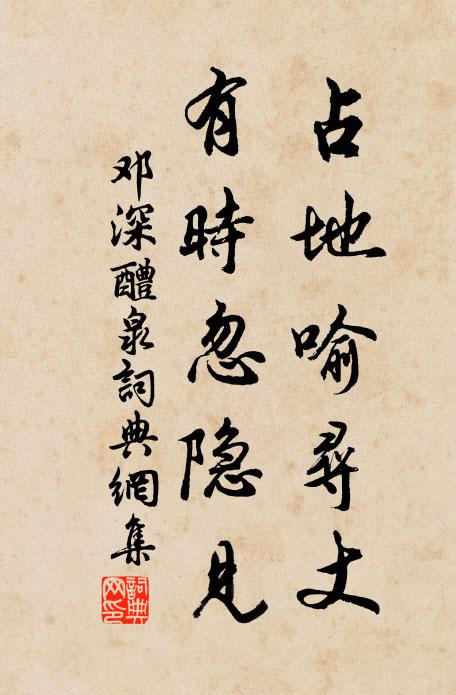 占地喻尋丈
有時忽隐見
邓深醴泉詞典網集
詞典網印